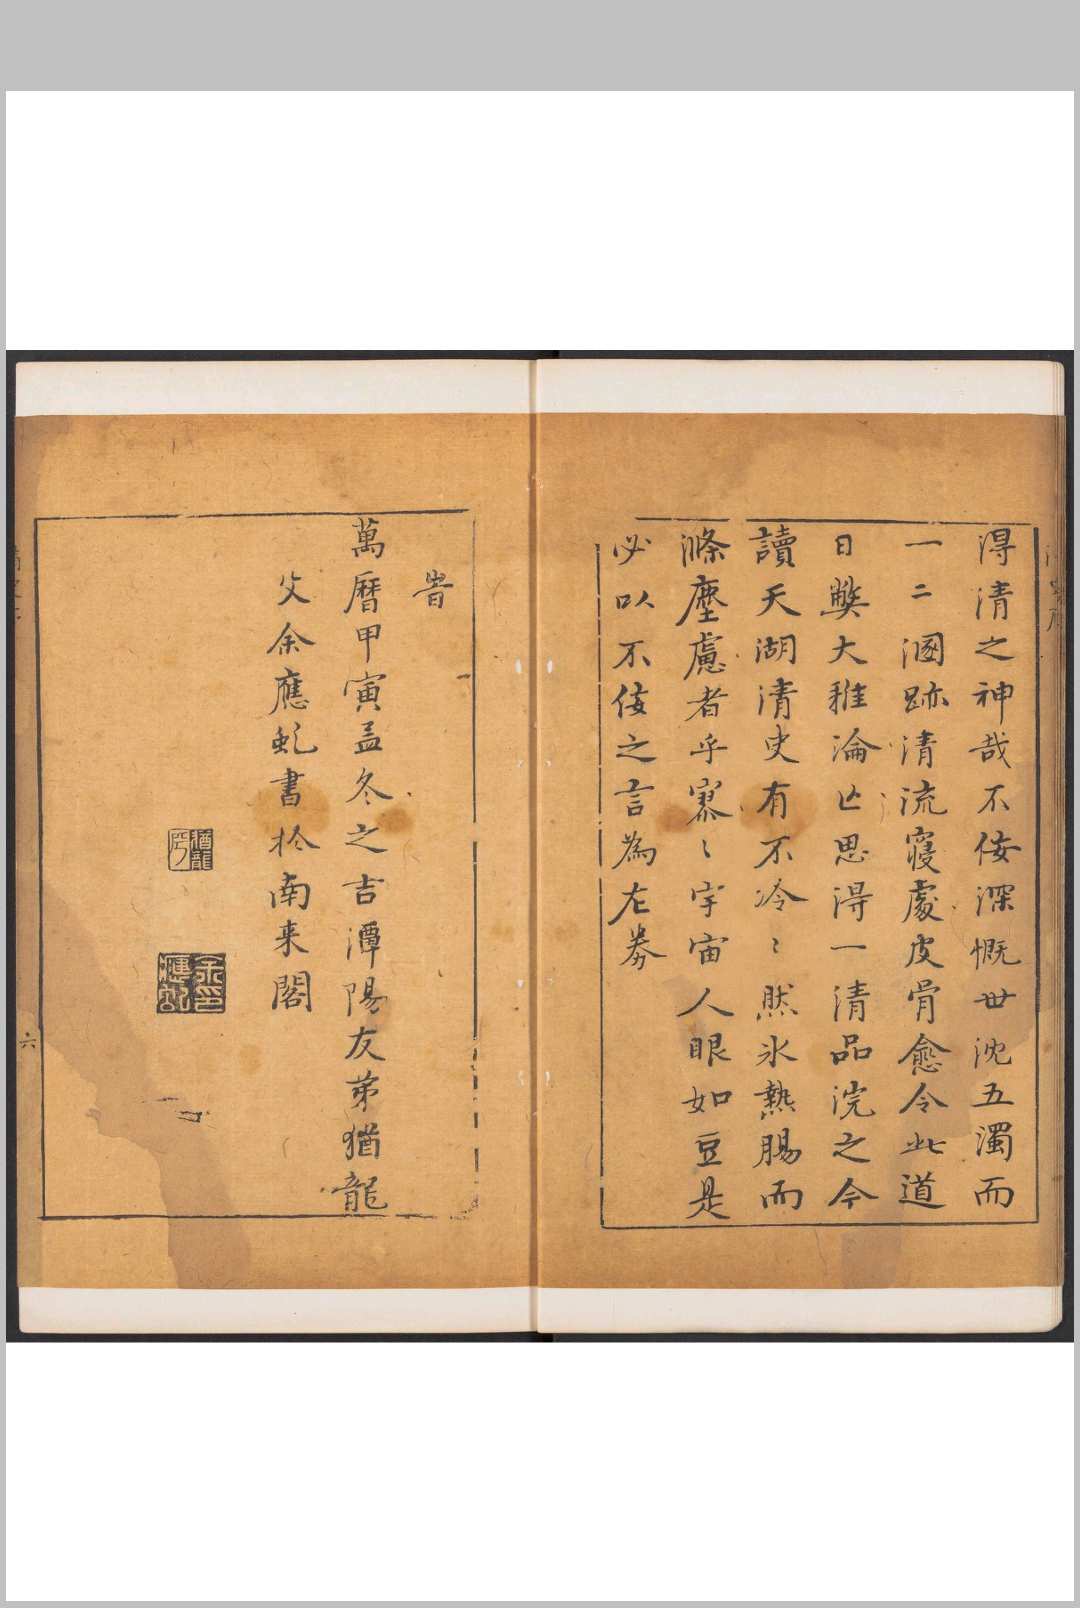 得清之神哉不佞深慨世沈五濁而
一二溷跡清流寢處皮骨愈令此道
日斃大雅淪亡思得一清品浣之今
讀天湖清史有不冷〻然氷熱腸而
滌塵慮者乎寥〻宇宙人眼如豆是
必以不佞之言為左券
旹
萬曆甲寅孟冬之吉潭陽友弟猶龍
父余應虬書於南来閣
猶龍
余應虬印
六